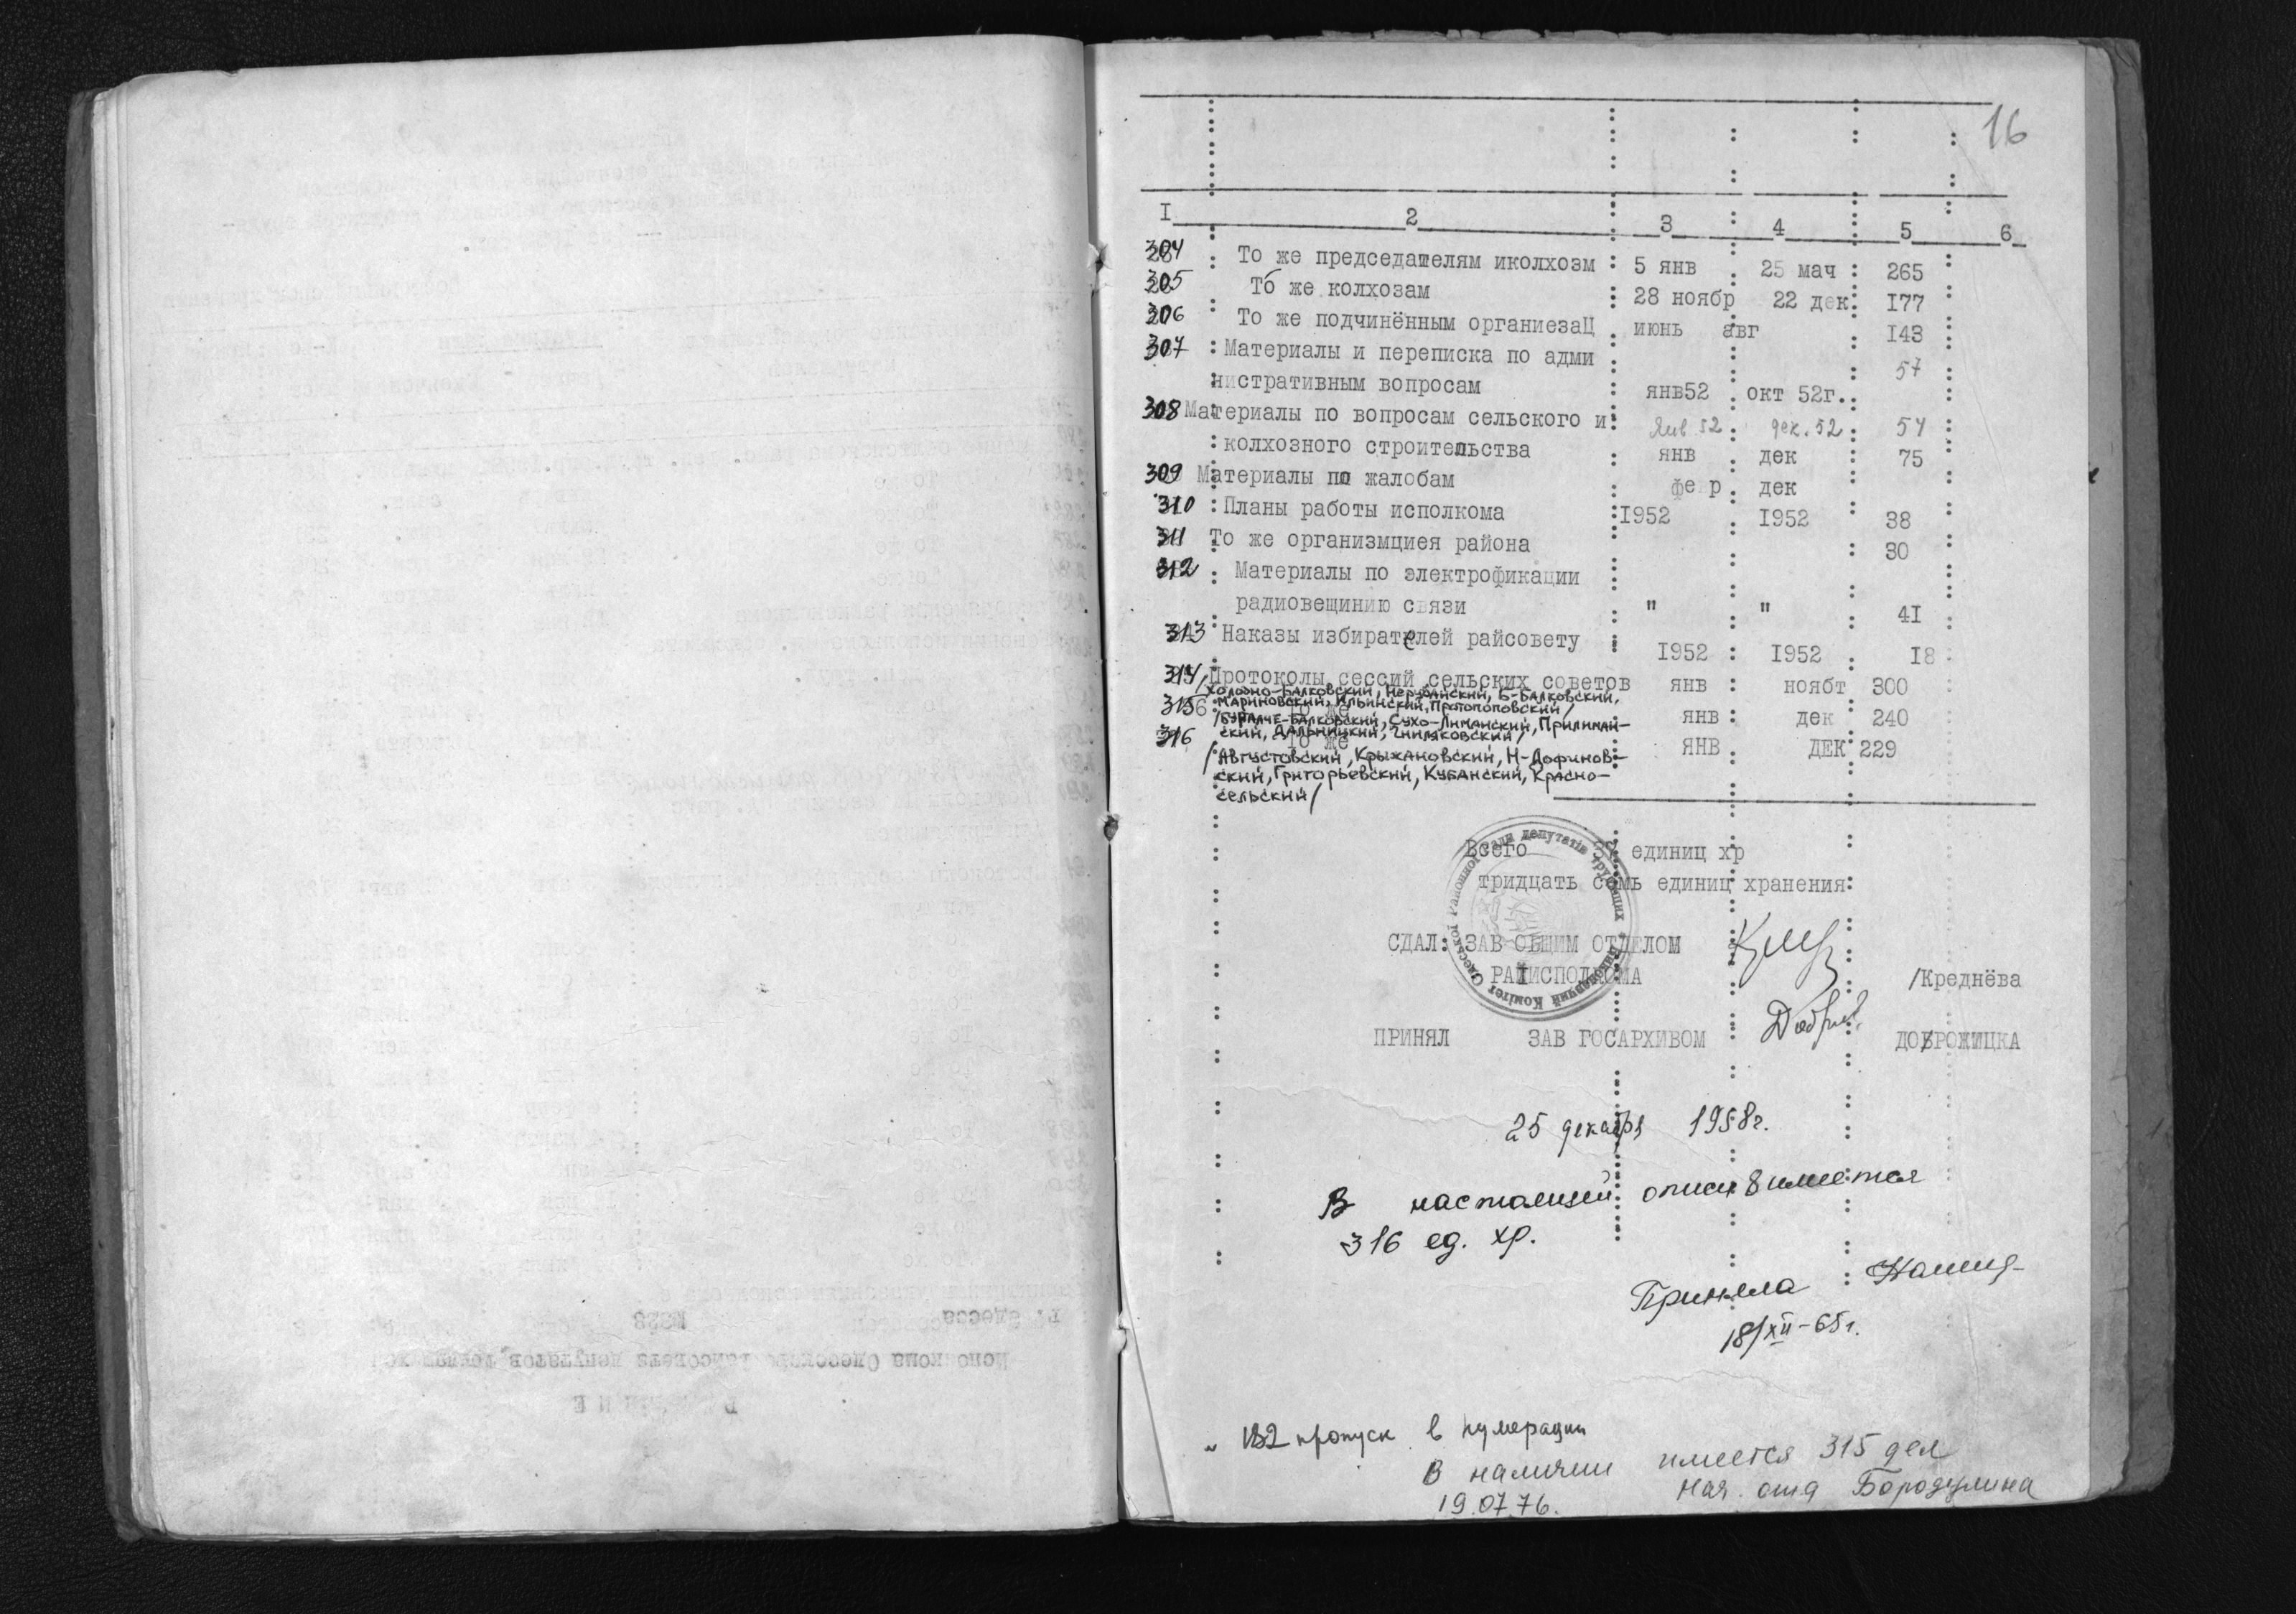 16
I 2 3 4 5 6
304 То же председателям иколхозм 5 янв 25 мач 265
305 То же колхозам 28 ноябр 22 дек 177
306 То же подчинённым органиезаЦ июнь авг 143
307 Материалы и переписка по адми 57
нистративным вопросам янв52 окт 52г.
308 Материалы по вопросам сельского и Янв 52 дек. 52 54
колхозного строительства янв дек 75
309 Материалы по жалобам фе р дек
310 Планы работы исполкома 1952 1952 38
311 То же организмциея района 30
312 Материалы по электрофикации
радиовещинию связи " " 41
313 Наказы избирателей райсовету 1952 1952 18
314 Протоколы сессий сельских советов янв ноябт 300
/Холодно-Балковский, Нерубайский, Б-Балковский,
Мариновский, Ильинский, Протопоповский/
315 То же янв дек 240
/Бурлаче-Балковский, Сухо-Лиманский, Прилиман-
ский, Дальницкий, Гниляковский/
316 То же ЯНВ ДЕК 229
/Августовский, Крыжановский, Н-Дофинов-
ский, Григорьевский, Кубанский, Красно-
сельский/
Всего единиц хр
тридцать семь единиц хранения
СДАЛ: ЗАВ ОБЩИМ ОТДЕЛОМ
РАЙИСПОЛКОМА /Креднёва
ПРИНЯЛ ЗАВ ГОСАРХИВОМ ДОБРОЖИЦКА
25 декабря 1958г.
В настоящей описи имеется
316 ед. хр.
Приняла
18/XII-65г.
пропуск в нумерации
В наличии имеется 315 дел
19.07.76. Нач. отд Бородулина